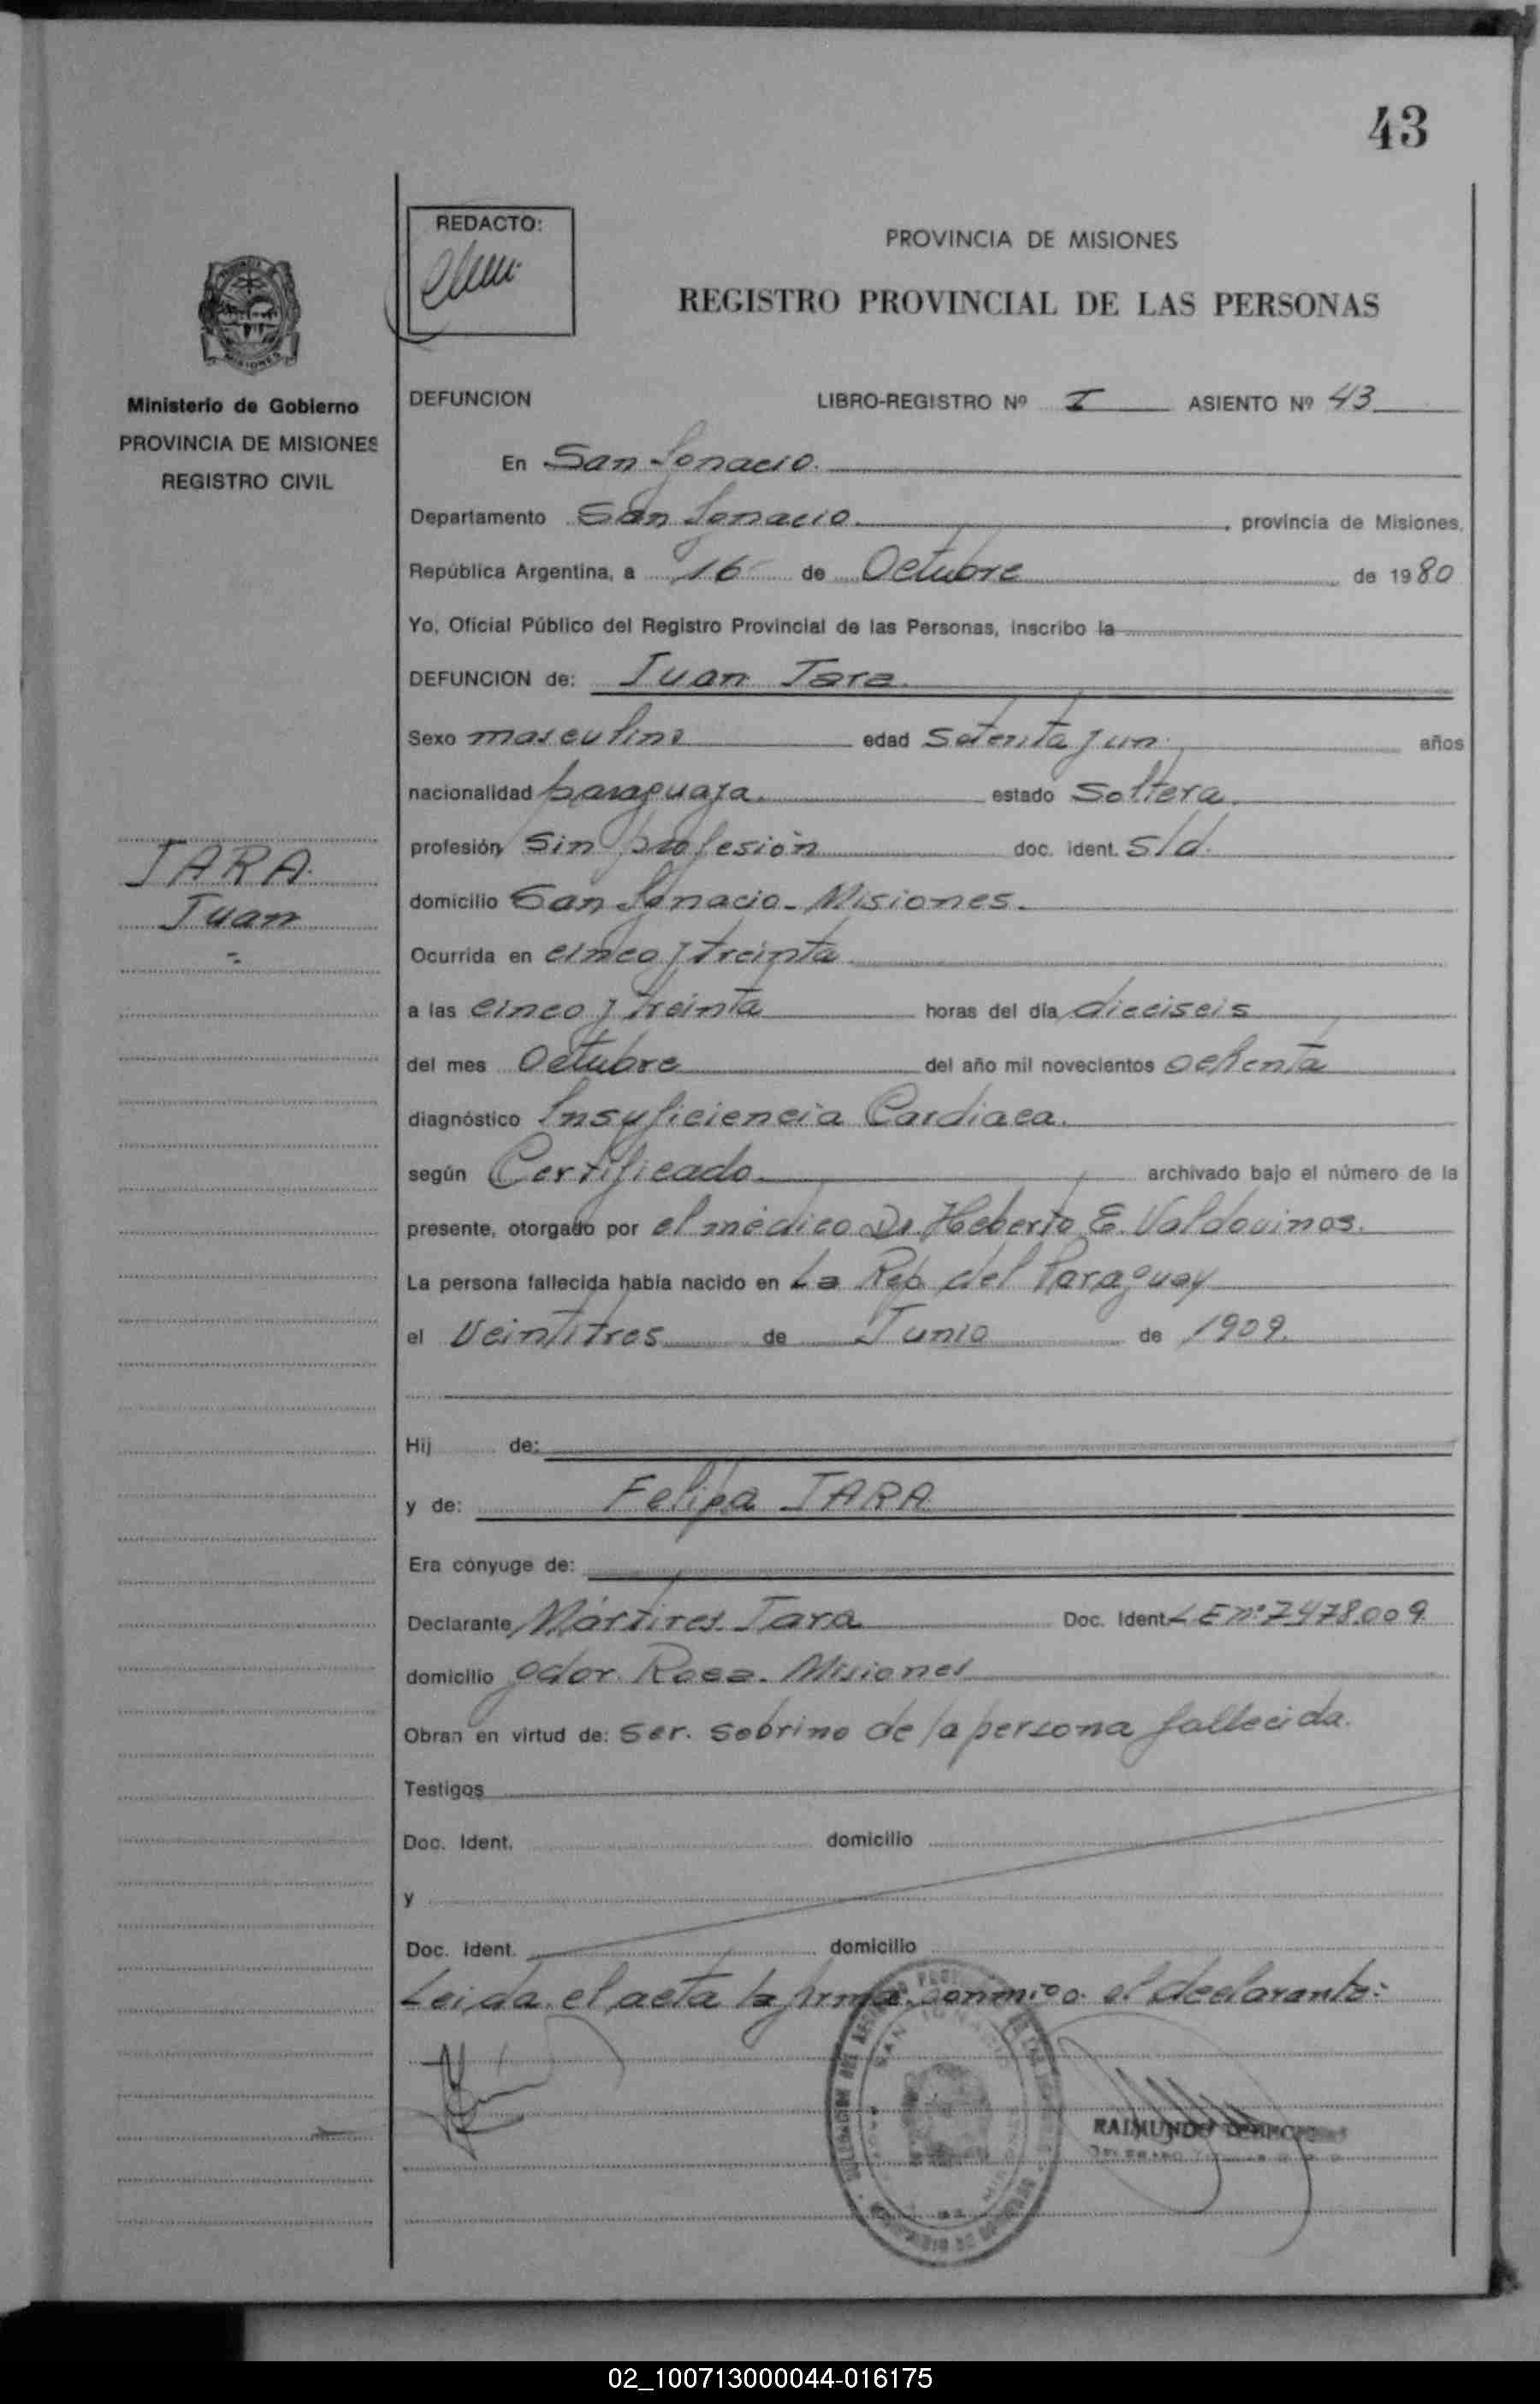 43
REDACTO:
PROVINCIA DE MISIONES
REGISTRO PROVINCIAL DE LAS PERSONAS
Ministerio de Gobierno
PROVINCIA DE MISIONES
REGISTRO CIVIL
DEFUNCION LIBRO-REGISTRO Nº I ASIENTO Nº 43
En San Ignacio.
Departamento San Ignacio. , provincia de Misiones.
República Argentina, a 16 de Octubre de 1980
Yo, Oficial Público del Registro Provincial de las Personas, inscribo la
DEFUNCION de: Juan Jara
Sexo masculino edad Setenta y un años
nacionalidad paraguaya. estado Soltera
profesión Sin profesión doc. ident. S/d.
JARA.
Juan
domicilio San Ignacio - Misiones.
Ocurrida en cinco y treinta
a las cinco y treinta horas del día dieciseis
del mes Octubre del año mil novecientos ochenta
diagnóstico Insuficiencia Cardiaca.
según Certificado archivado bajo el número de la
presente, otorgado por el médico Dr. Heberto E. Valdovinos.
La persona fallecida había nacido en La Rep. del Paraguay
el Veintitres de Junio de 1909.
Hij de:
y de: Felipa JARA
Era cónyuge de:
Declarante Mártires Jara Doc. Ident. L E nº 7478.009
domicilio gdor. Roca - Misiones
Obran en virtud de: ser. sobrino de la persona fallecida.
Testigos
Doc. Ident. domicilio
y
Doc. Ident. domicilio
Leida el acta la firma conmigo el declarante:
SAN IGNACIO
RAIMUNDO
02_100713000044-016175